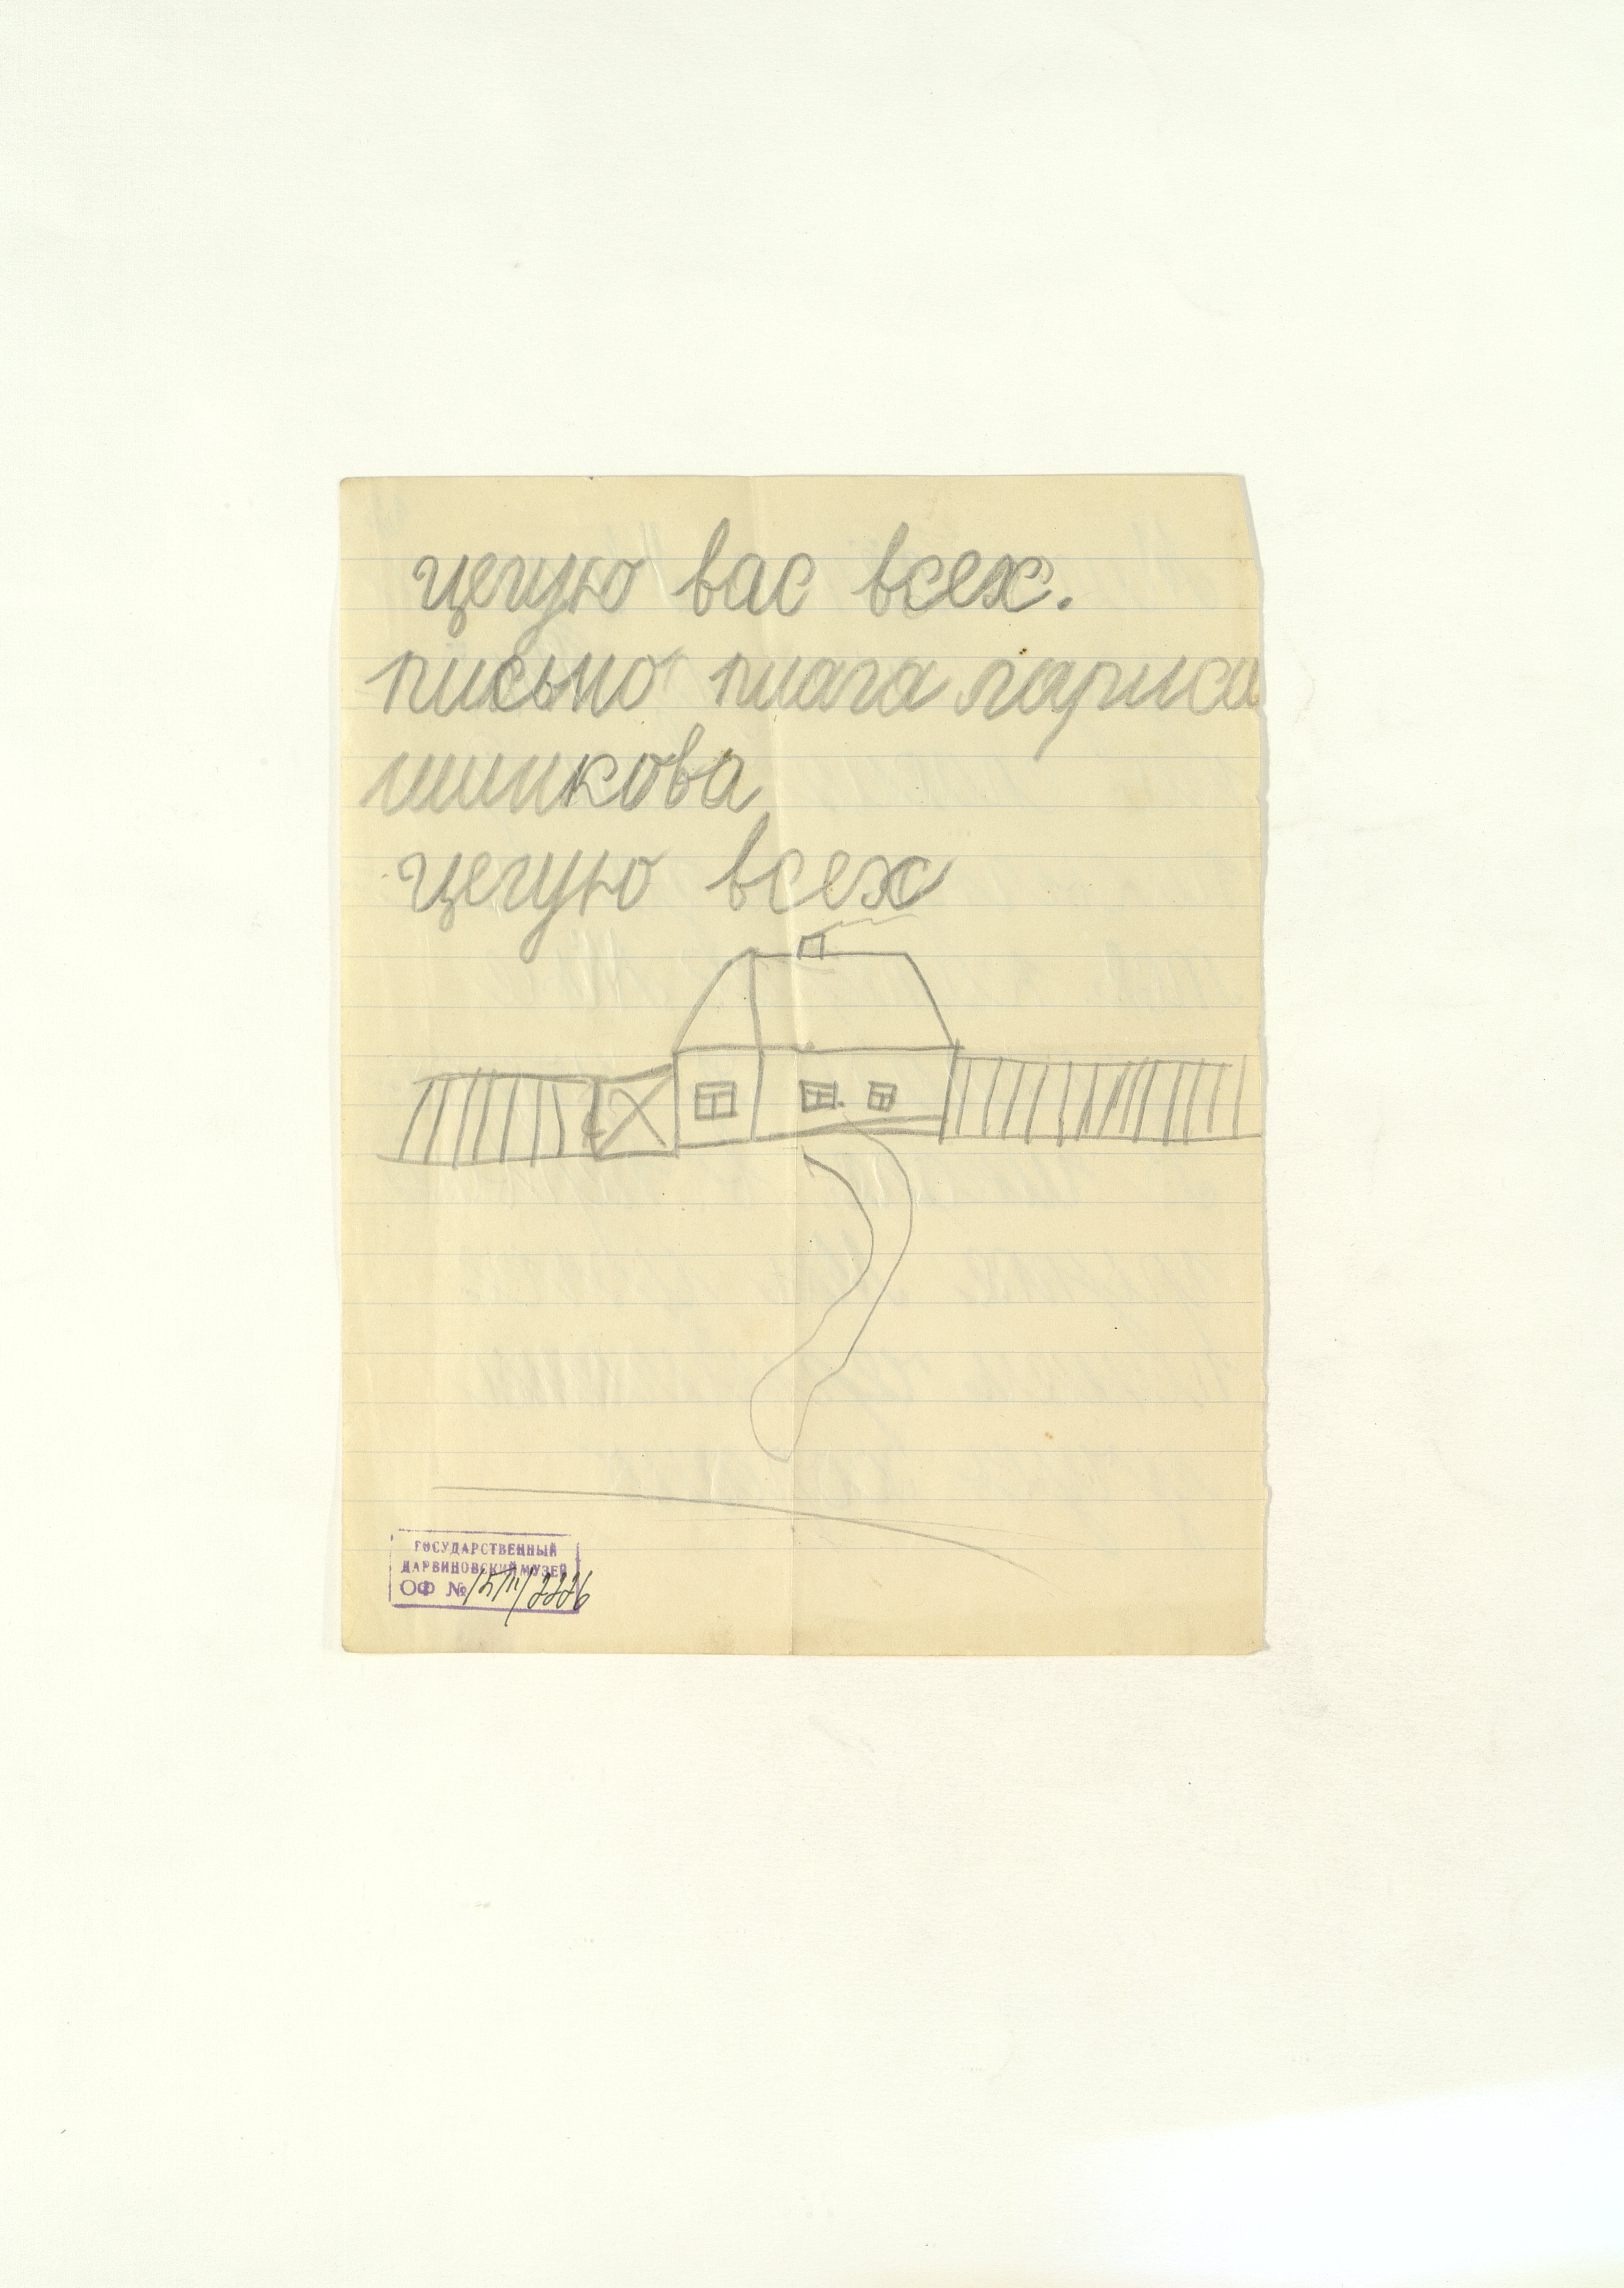 целую вас всех.
письмо писала лариса
шишкова
целую всех
ГОСУДАРСТВЕННЫЙ
ДАРВИНОВСКИЙ МУЗЕЙ
ОФ №